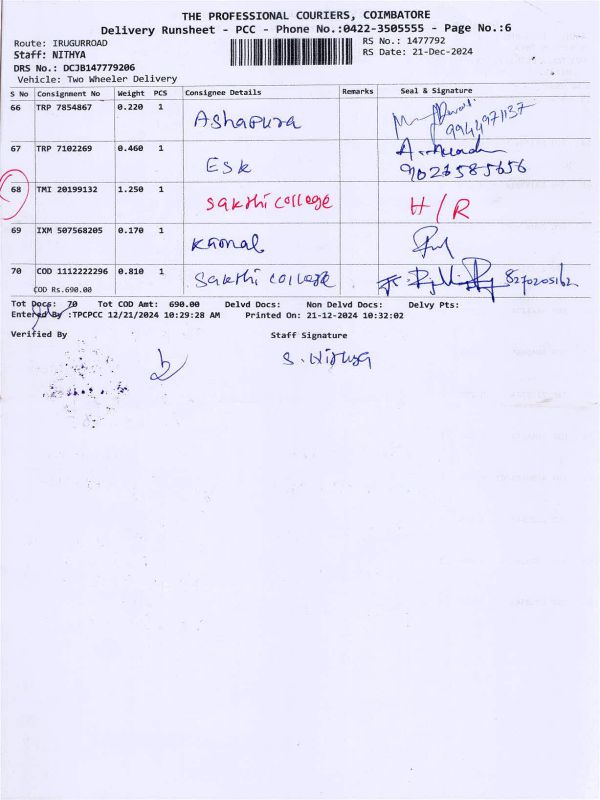 THE PROFESSIONAL COURIERS, COIMBATORE
Delivery Runsheet - PCC - Phone No.:0422-3505555 - Page No.:6
Route: IRUGURROAD
RS No.: 1477792
Staff: NITHYA
RS Date: 21-Dec-2024
DRS No.: DCJB147779206
Vehicle: Two Wheeler Delivery
S No Consignment No Weight PCS Consignee Details Remarks Seal & Signature
66 TRP 7854867 0.220 1 Ashapura 9944971137
67 TRP 7102269 0.460 1 Esk
68 TMI 20199132 1.250 1 sakthi college H/R
69 IXM 507568205 0.170 1 Kamal
70 COD 1112222296 0.810 1 Sakthi college 8270205162
COD Rs.690.00
Tot Docs: 70 Tot COD Amt: 690.00 Delvd Docs: Non Delvd Docs: Delvy Pts:
Entered By :TPCPCC 12/21/2024 10:29:28 AM Printed On: 21-12-2024 10:32:02
Verified By Staff Signature
S. Nithya